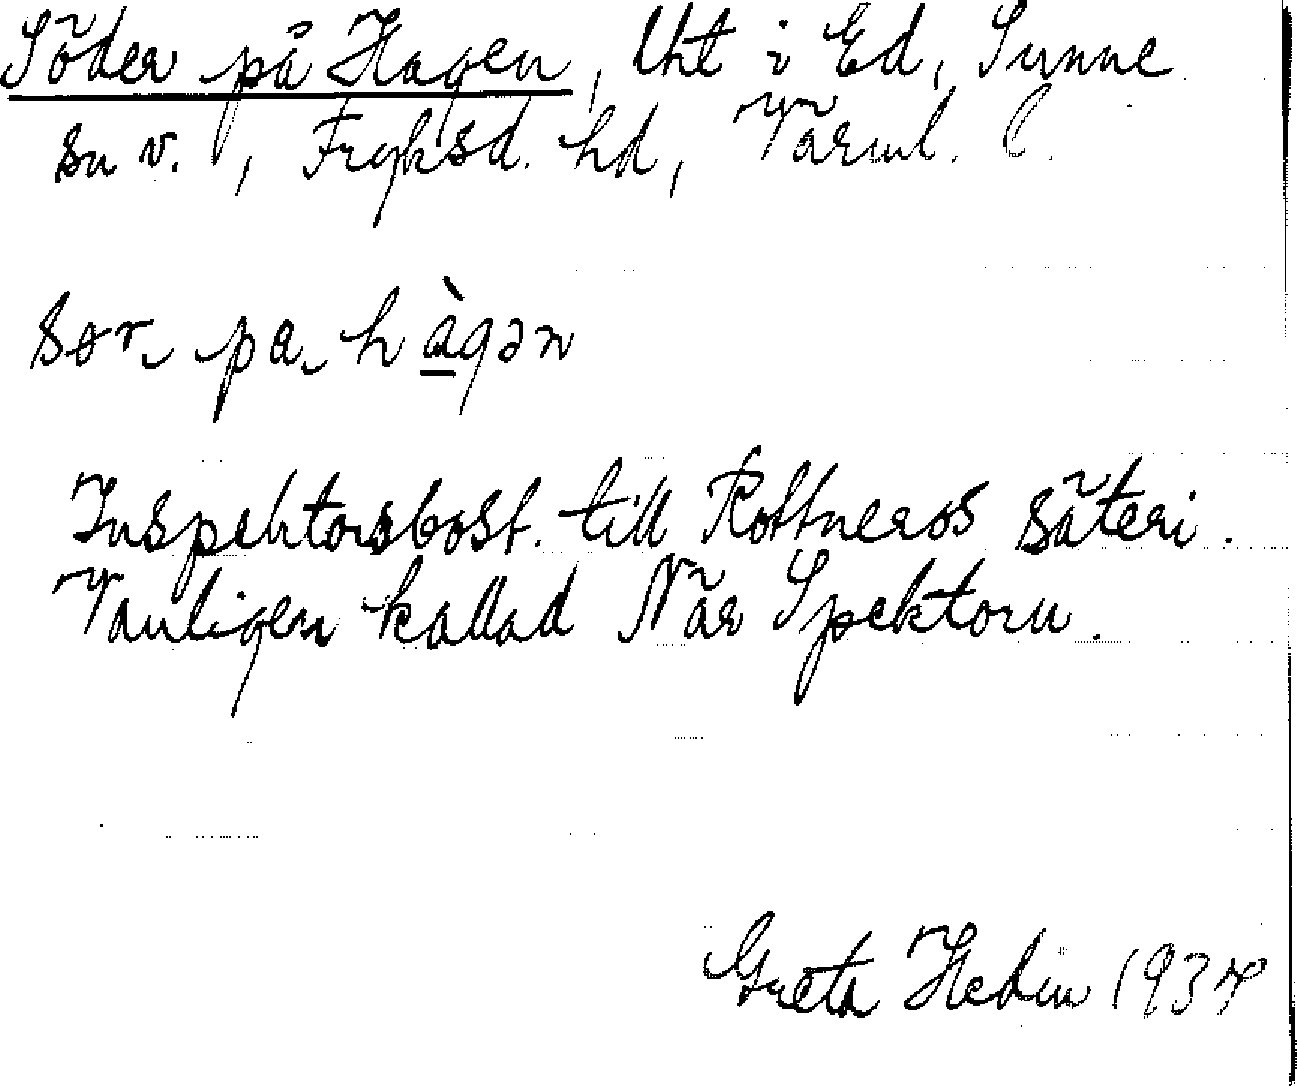 Söder på Hagen, lht i Ed, Sunne
sn v., Fryksd. hd, Värml. l.
sør. pa. hàgən
Inspektorsbost. till Rottneros säteri.
Vanligen kallad När Spektorn.
Greta Hedin 1934